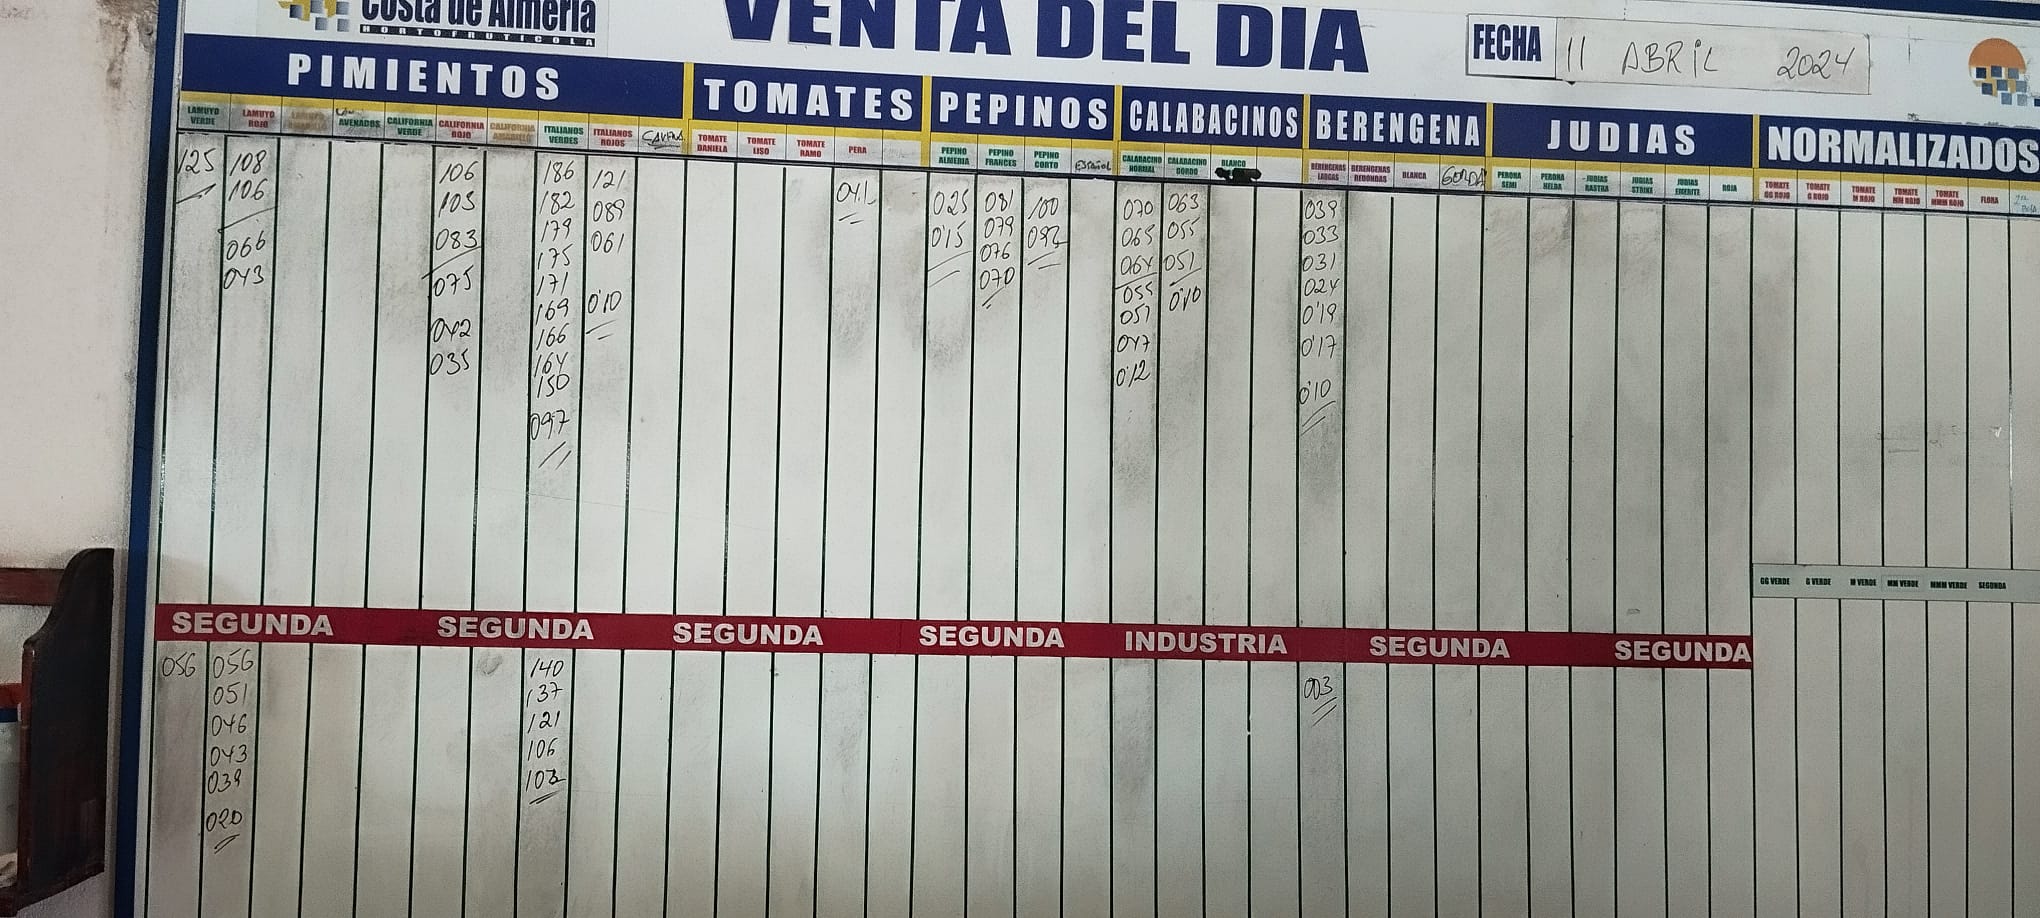 Costa de Almería
HORTOFRUTICOLA
VENTA DEL DIA
FECHA 11 ABRIL 2024
PIMIENTOS TOMATES PEPINOS CALABACINOS BERENGENA JUDIAS NORMALIZADOS
LAMUYO VERDE
LAMUYO ROJO
AVENADOS
CALIFORNIA VERDE
CALIFORNIA ROJO
CALIFORNIA AMARILLO
ITALIANOS VERDES
ITALIANOS ROJOS
TOMATE DANIELA
TOMATE LISO
TOMATE RAMO
PERA
PEPINO ALMERIA
PEPINO FRANCES
PEPINO CORTO
ESPAÑOL
CALABACINO NORMAL
CALABACINO GORDO
BLANCO
BERENGENAS LARGAS
BERENGENAS REDONDAS
BLANCA
GORDA
PERONA SEMI
PERONA HELDA
JUDIAS RASTRA
JUDIAS STRIKE
JUDIAS EMERITE
ROJA
TOMATE GG ROJO
TOMATE G ROJO
TOMATE M ROJO
TOMATE MM ROJO
TOMATE MMM ROJO
FLORA
125
108
106
066
043
106
103
083
075
042
035
186
182
179
175
171
169
166
164
150
097
121
089
061
0'10
041
025
0'15
081
079
076
070
100
092
070
065
064
055
051
047
0'12
063
055
051
0'10
039
033
031
024
0'19
0'17
0'10
GG VERDE G VERDE M VERDE MM VERDE MMM VERDE SEGUNDA
SEGUNDA SEGUNDA SEGUNDA SEGUNDA INDUSTRIA SEGUNDA SEGUNDA
056
056
051
046
043
039
020
140
137
121
106
103
003